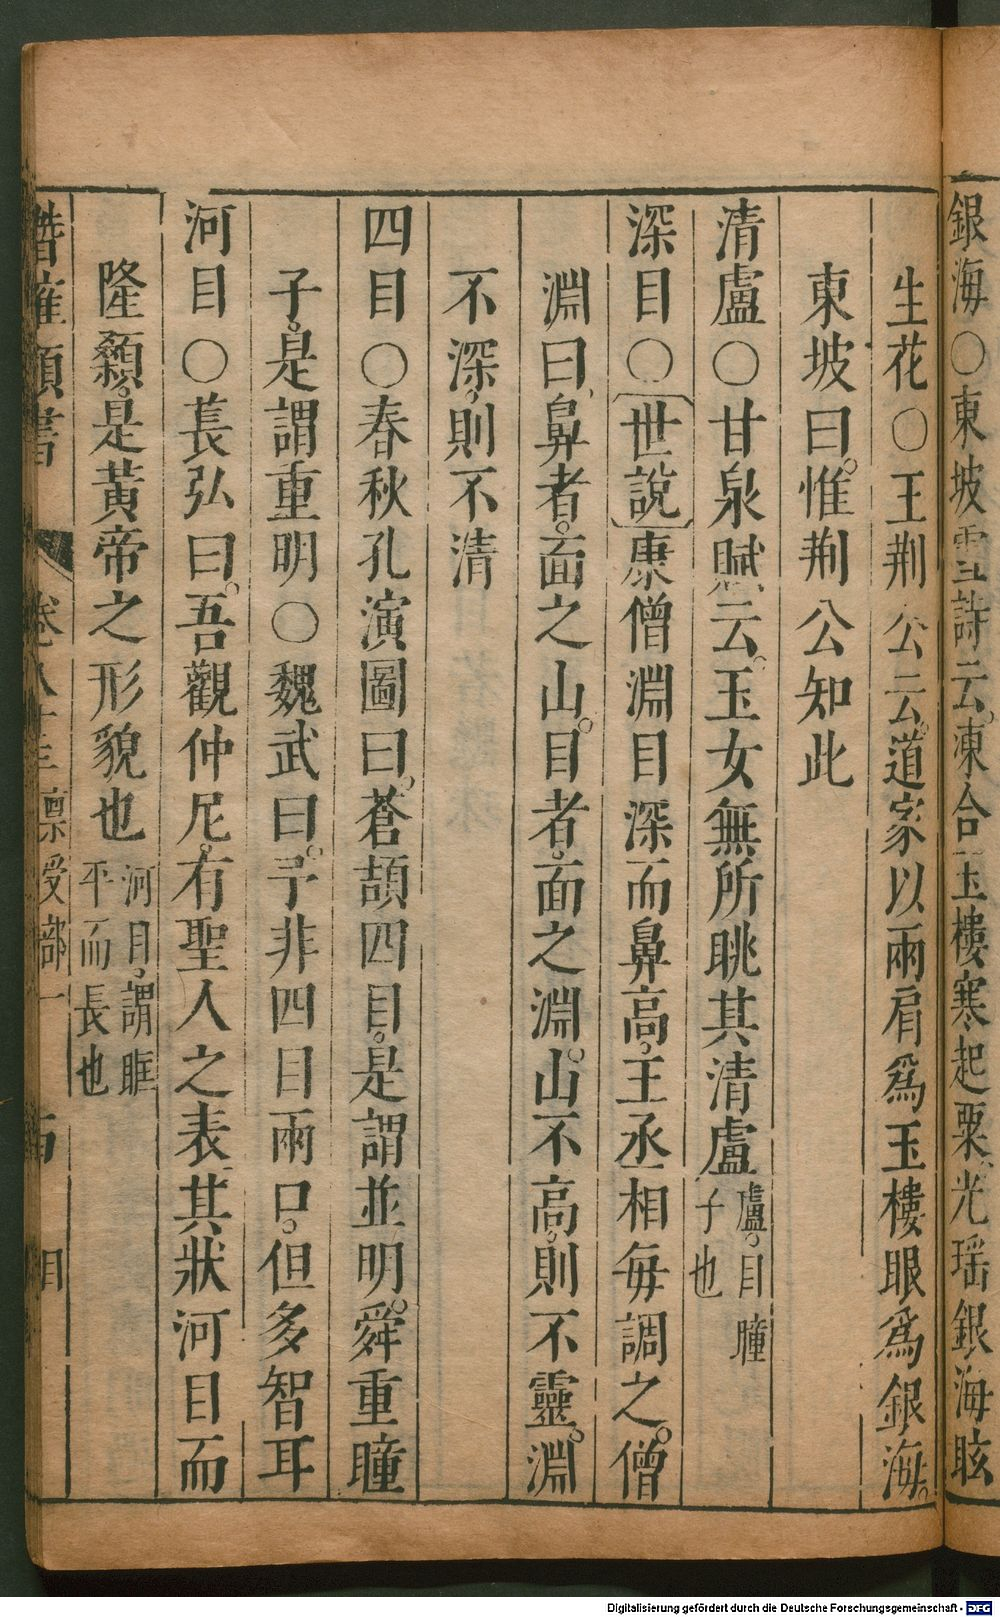 銀海○東坡雪詩云凍合玉樓寒起粟光瑶銀海眩
生花○王荆公云道家以兩肩爲玉樓眼爲銀海
東坡曰惟荆公知此
清盧○甘泉賦云玉女無所眺其清盧盧目瞳子也
深目○世說康僧淵目深而鼻高王丞相每調之僧
淵曰鼻者面之山目者面之淵山不高則不靈淵
不深則不清
四目○春秋孔演圖曰蒼頡四目是謂並明舜重瞳
子是謂重明○魏武曰予非四目兩口但多智耳
河目○萇弘曰吾觀仲尼有聖人之表其狀河目而
隆顙是黃帝之形貌也河目謂眶平而長也
潛確類書 卷八十 禀受部一
Digitalisierung gefördert durch die Deutsche Forschungsgemeinschaft - DFG